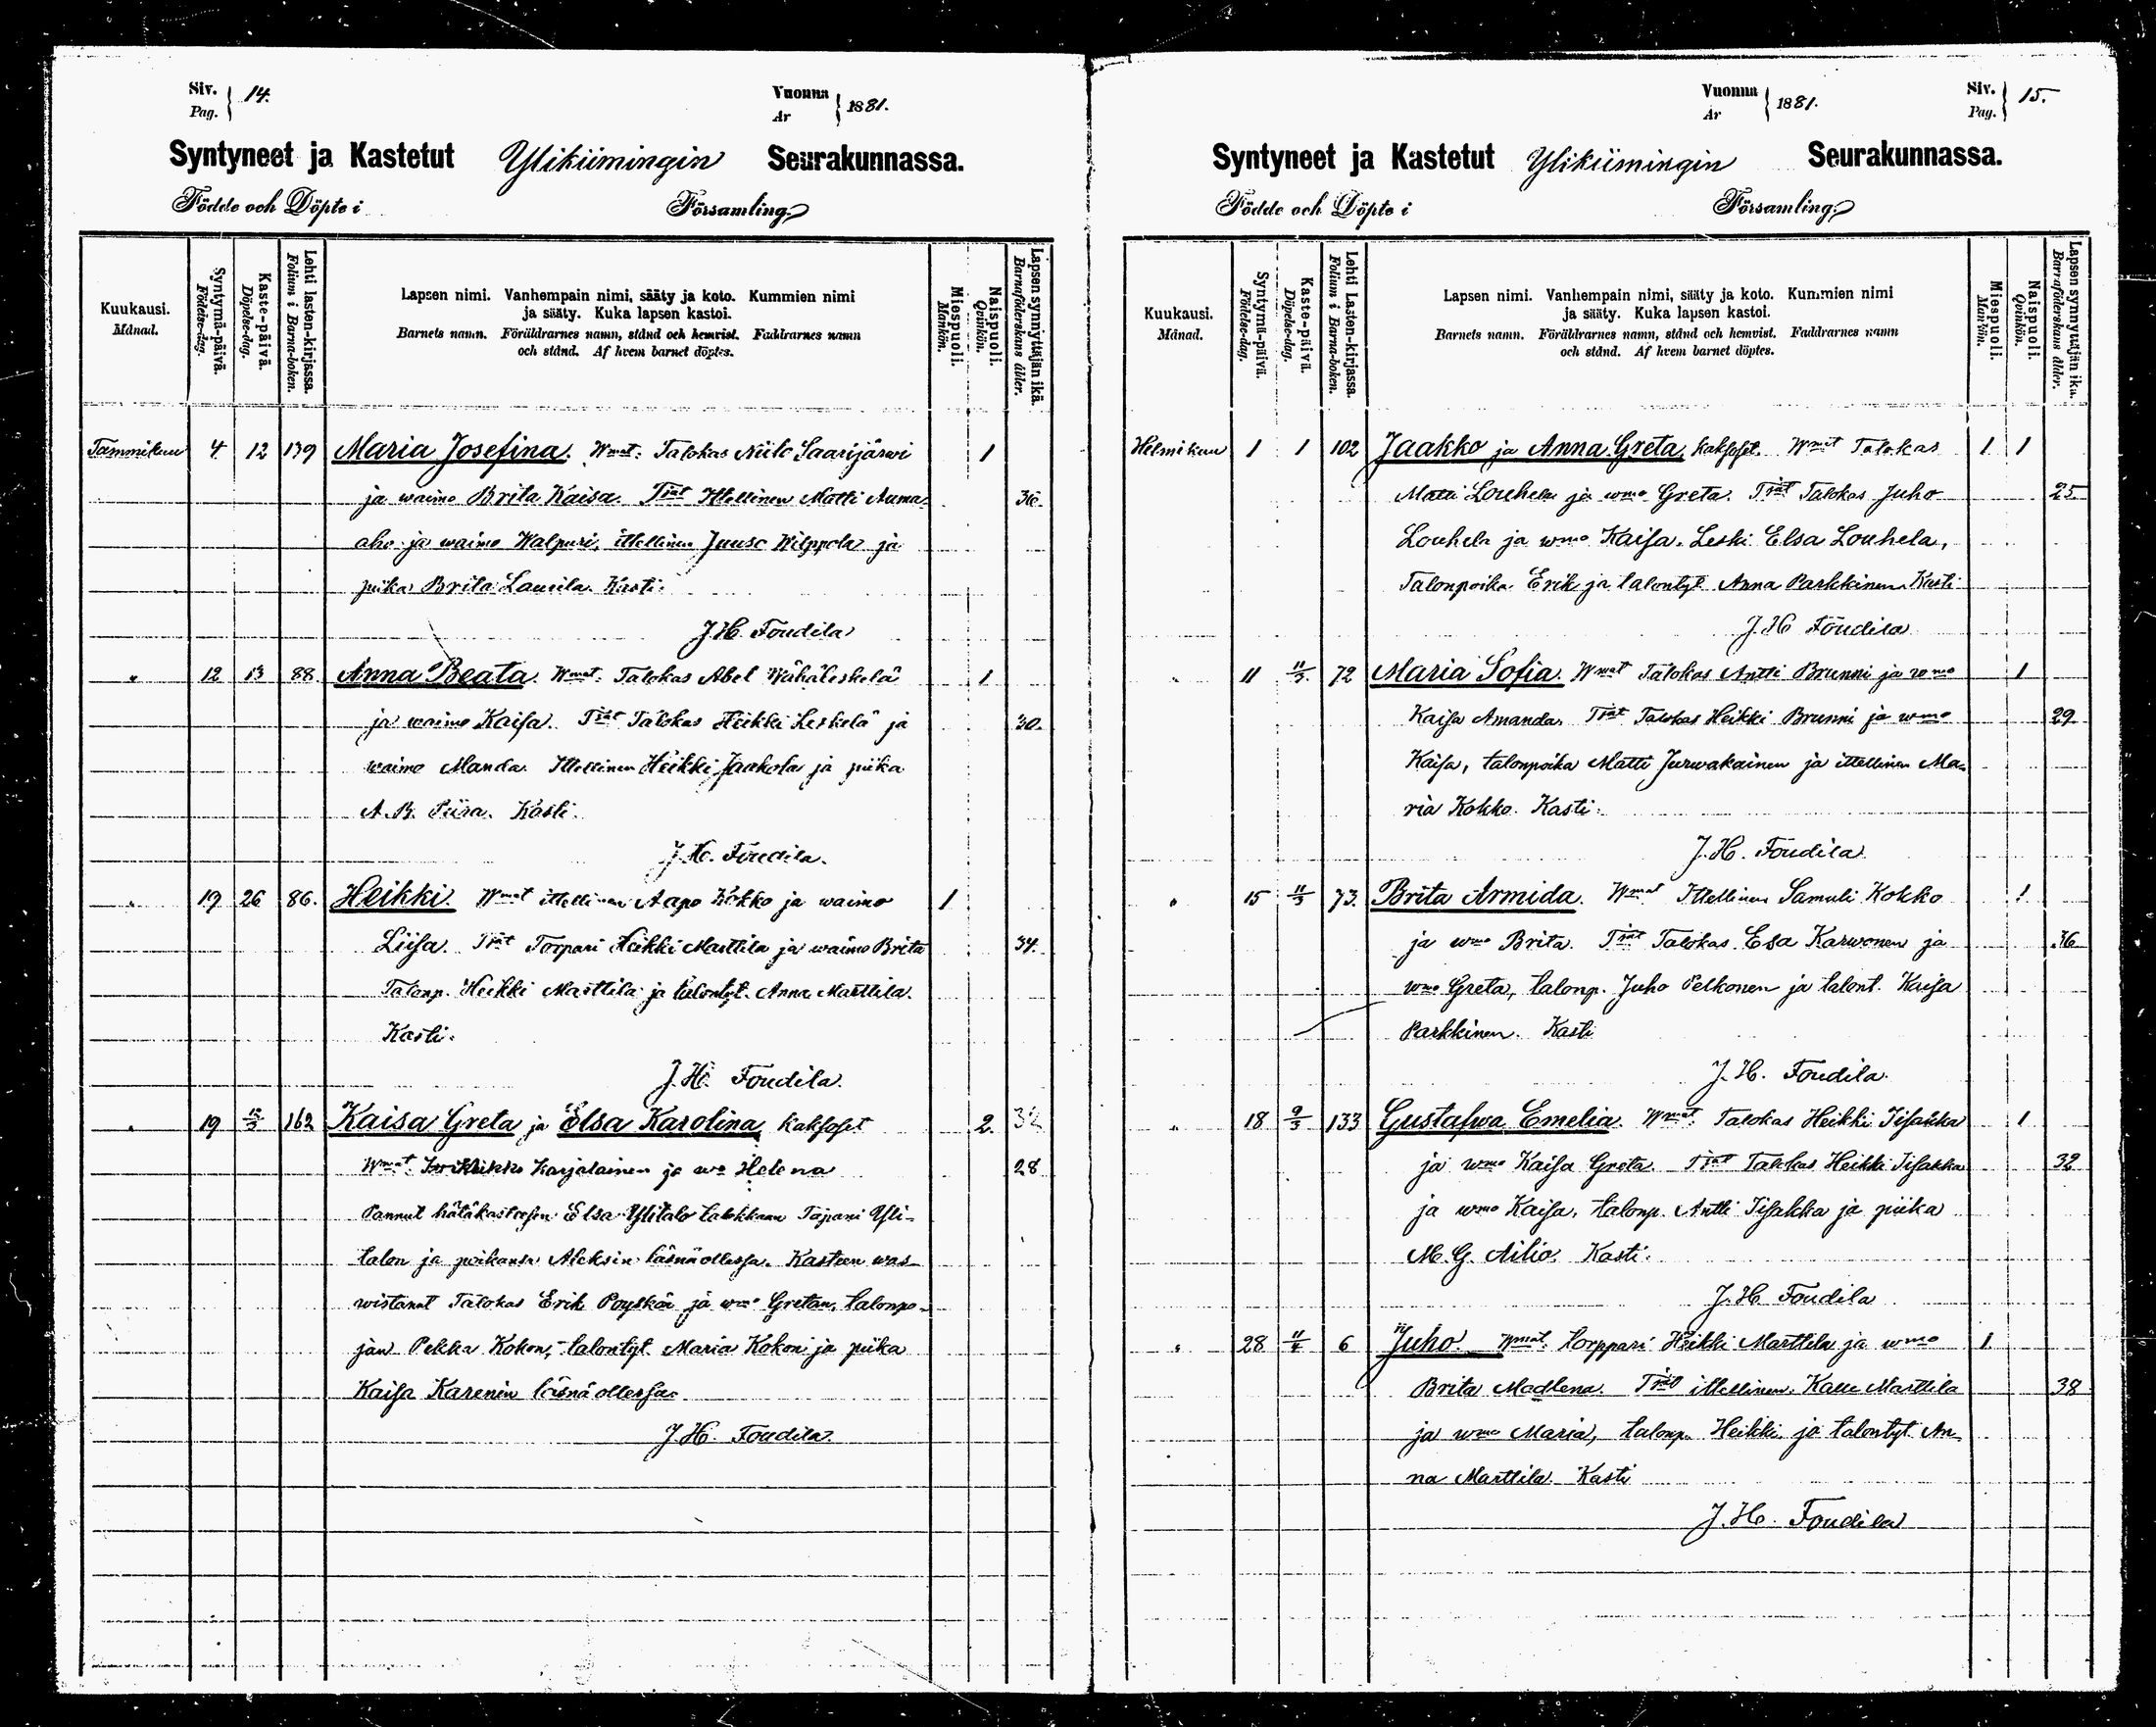 Siv. Pag. 14.
Vuonna År 1881.
Syntyneet ja Kastetut Ylikiimingin Seurakunnassa.
Födde och Döpte i Församling.
Kuukausi. Månad.
Syntymä-päivä. Födelse-dag.
Kaste-päivä. Döpelse-dag.
Lehti lasten-kirjassa. Folium i Barna-boken.
Lapsen nimi. Vanhempain nimi, sääty ja koto. Kummien nimi
ja sääty. Kuka lapsen kastoi.
Barnets namn. Föräldrarnes namn, stånd och hemvist. Faddrarnes namn
och stånd. Af hvem barnet döptes.
Miespuoli. Mankön.
Naispuoli. Qvinkön.
Lapsen synnyttäjän ikä. Barnaföderskans ålder.
Tammikuu 4. 12 139 Maria Josefina. Wmat: Talokas Niilo Saarijärwi 1
ja waimo Brita Kaisa. Tjat Ittellinen Matti Auma- 36.
aho ja waimo Walpuri, ittellinen Juuso Wilppola ja
piika Brita Laurila. Kasti:
J.H. Foudila
" 12 13 88 Anna Beata. Wmat: Talokas Abel Wähäleskelä 1
ja waimo Kaisa. Tjat Talokas Heikki Leskelä ja 30.
waimo Manda. Ittellinen Heikki Jaakola ja piika
A. B. Piira. Kasti:
J.H. Foudila.
" 19 26 86. Heikki. Wmat ittellinen Aapo Kokko ja waimo 1
Liisa. Tjat Torpari Heikki Marttila ja waimo Brita 34.
Talonp. Heikki Marttila ja talontyt. Anna Marttila.
Kasti:
J.H. Foudila.
" 19 162 Kaisa Greta ja Elsa Karolina kaksoset 2. 32
Wmat. Karjalainen ja wo Helena 28
Pannut hätäkasteesen Elsa Ylitalo talokkaan Tapani Yli-
talon ja poikansa Aleksin läsnäollessa. Kasteen was-
wistanut Talokas Erik Poyskön ja wmo Gretan, talonpo-
jan Pekka Kokon, talontyt. Maria Kokon ja piika
Kaisa Karenin läsnä ollessa
J.H. Foudila.
Vuonna År 1881.
Siv. Pag. 15.
Syntyneet ja Kastetut Ylikiimingin Seurakunnassa.
Födde och Döpte i Församling.
Kuukausi. Månad.
Syntymä-päivä. Födelse-dag.
Kaste-päivä. Döpelse-dag.
Lehti Lasten-kirjassa Folium i Barna-boken.
Lapsen nimi. Vanhempain nimi, sääty ja koto. Kummien nimi
ja sääty. Kuka lapsen kastoi.
Barnets namn. Föräldrarnes namn, stånd och hemvist. Faddrarnes namn
och stånd. Af hvem barnet döptes.
Miespuoli. Mankön.
Naispuoli. Qvinkön.
Lapsen synnyttäjän ikä. Barnaföderskans ålder.
Helmikuu 1 1 102 Jaakko ja Anna Greta, kaksoset. Wmat Talokas 1 1
Matti Louhela ja wmo Greta. Tjat Talokas Juho 25
Louhela ja wmo Kaisa. Leski Elsa Louhela,
Talonpoika Erik ja talontyt Anna Parkkinen. Kasti
J.H Foudila
" 11 11/3. 72 Maria Sofia. Wmat Talokas Antti Brunni ja wmo 1
Kaisa Amanda. Tjat Talokas Heikki Brunni ja wmo 29
Kaisa, talonpoika Matti Jurwakainen ja ittellinen Ma-
ria Kokko. Kasti:
J.H. Foudila
" 15 11/3 73. Brita Armida. Wmat Ittellinen Samuli Kokko 1
ja wmo Brita. Tjat Talokas Esa Karwonen ja 36
wmo Greta, talonp. Juho Pelkonen ja talont. Kaisa
Parkkinen. Kasti
J.H. Foudila.
" 18 9/3 133 Gustafwa Emelia. Wmat. Talokas Heikki Iisakka 1
ja wmo Kaisa Greta. Tjat Talokas Heikki Iisakka 32
ja wmo Kaisa, talonp. Antti Iisakka ja piika
M. G. Ailio. Kasti:
J.H Foudila
" 28 11/4 6 Juho. Wmat. torppari Heikki Marttila ja wmo 1.
Brita Madlena. Tjat ittellinen Kalle Marttila 38
ja wmo Maria, talonp. Heikki ja talontyt. An-
na Marttila. Kasti
J.H. Foudila